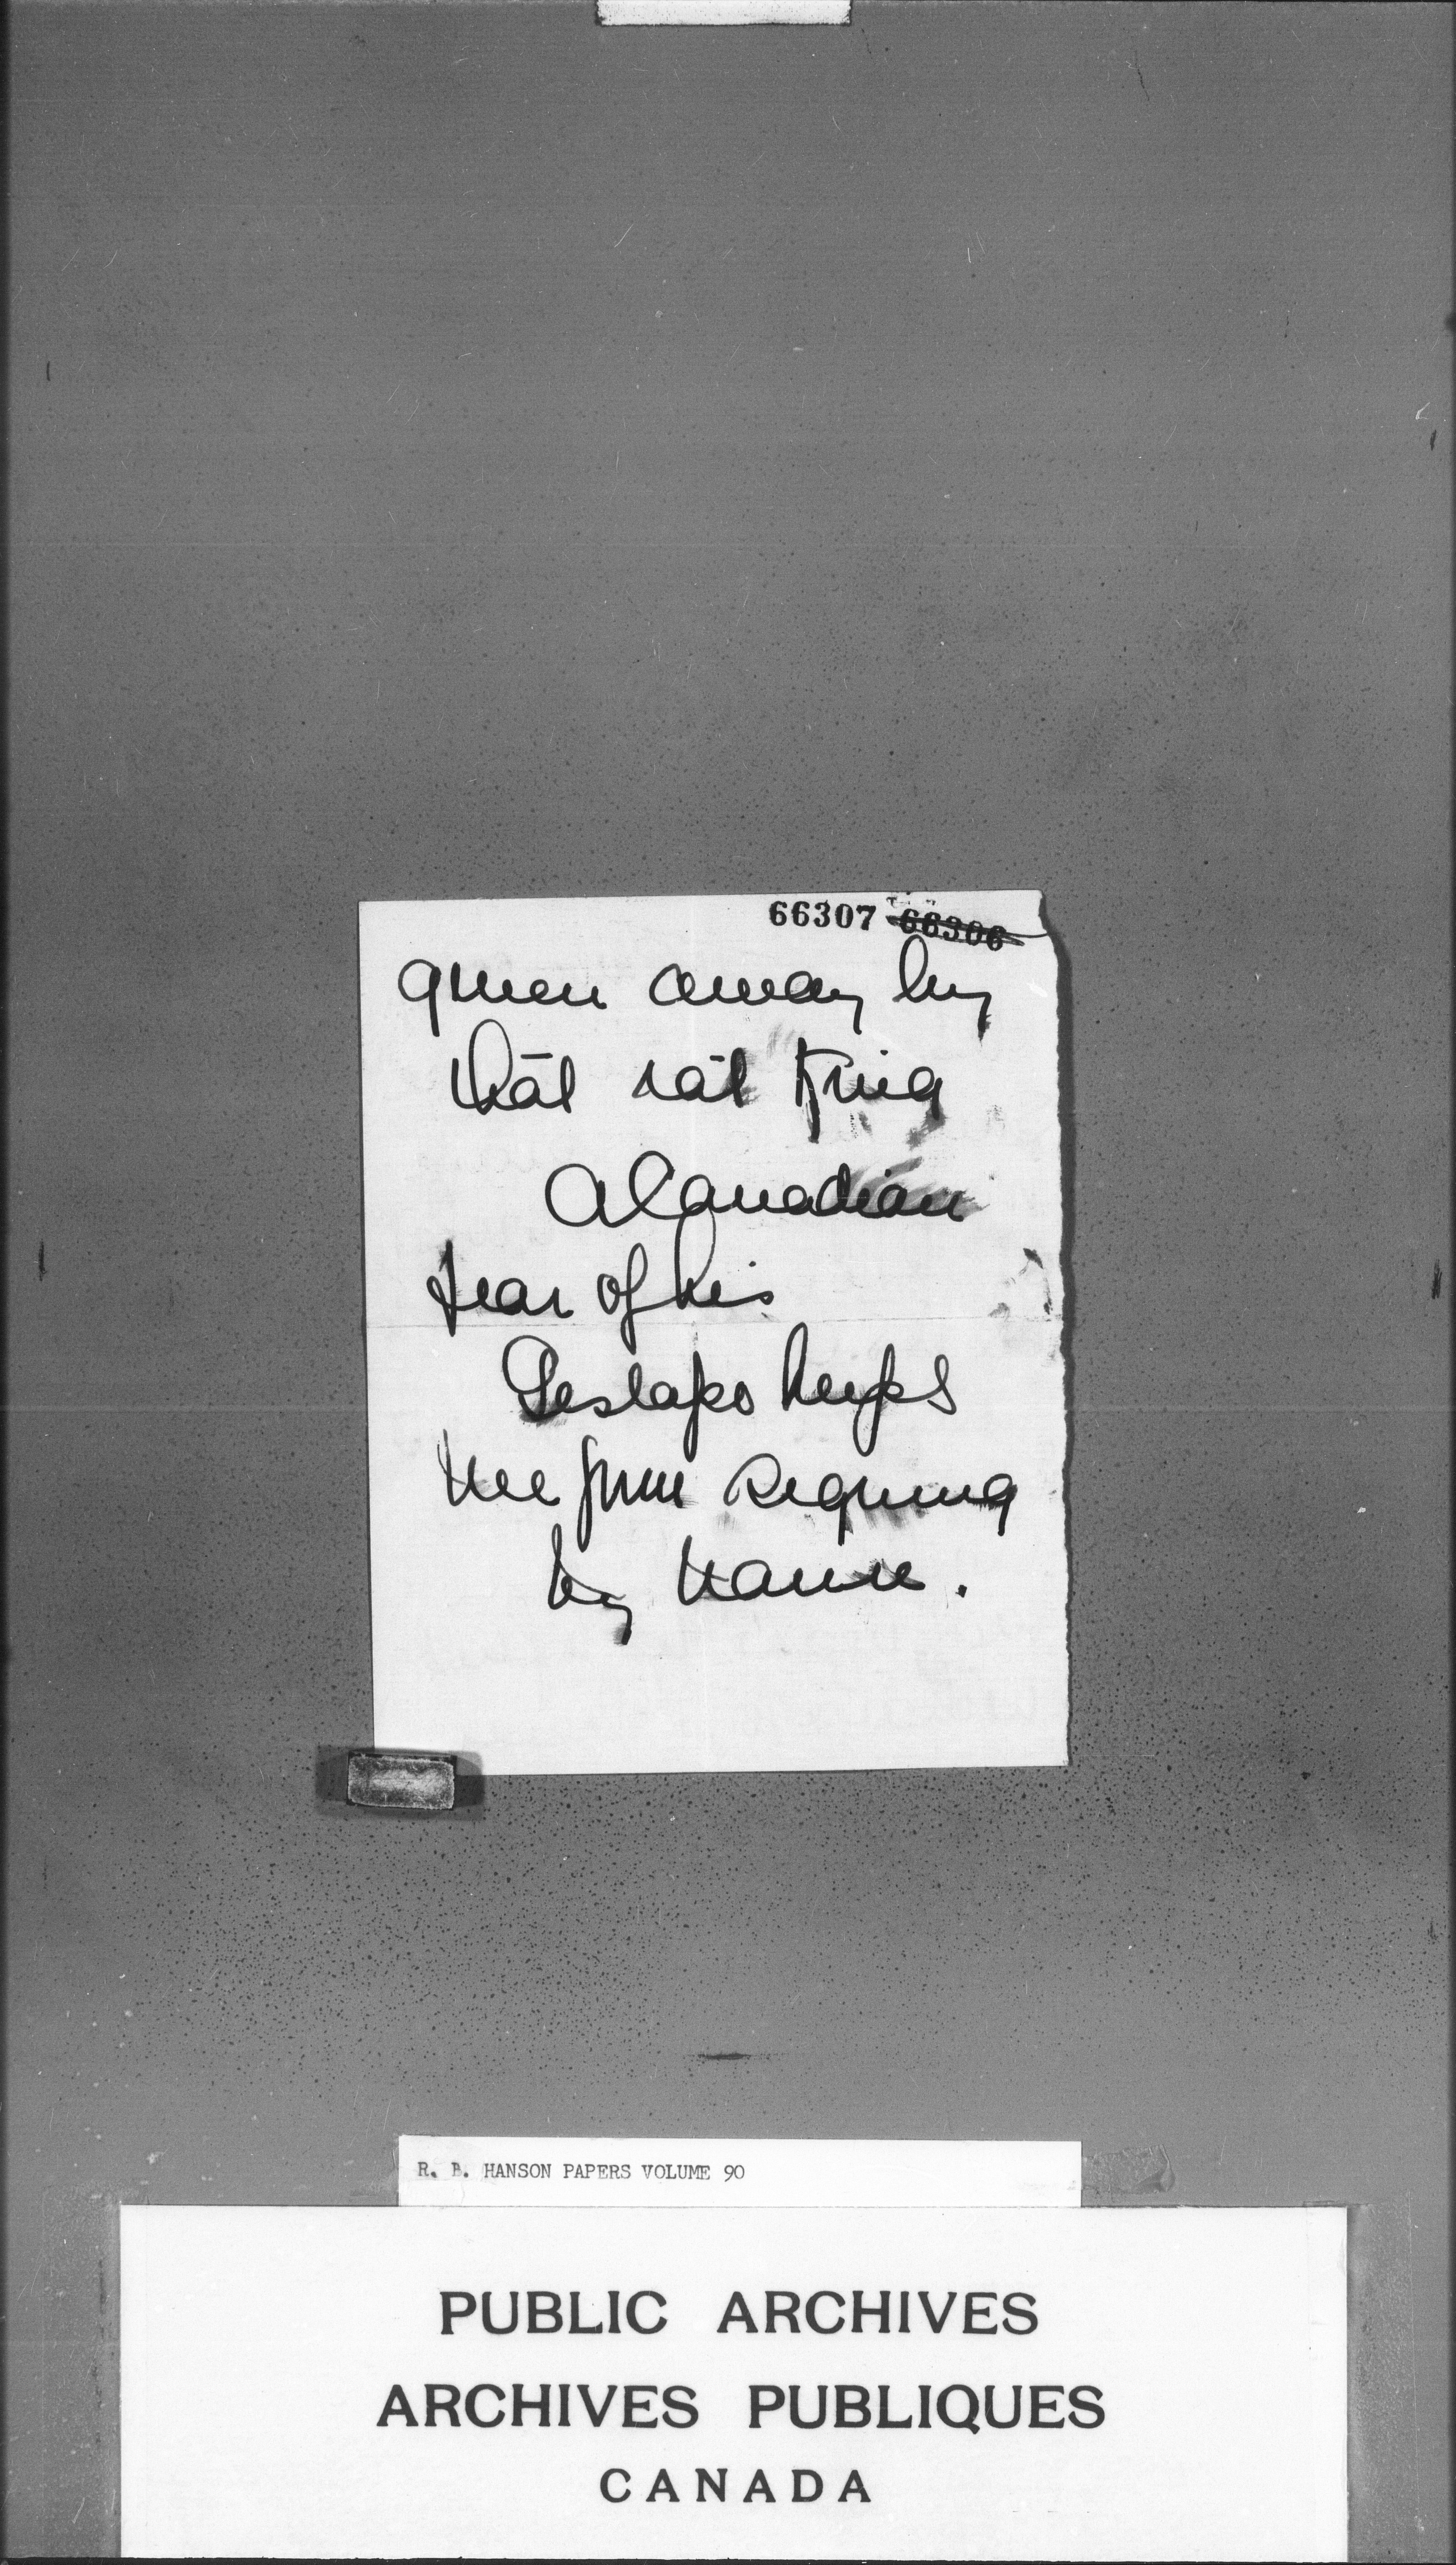 66307 66306
given away by
that rat King
A Canadian
fear of his
Gestapo keeps
me from signing
my name.
R. B. HANSON PAPERS VOLUME 90
PUBLIC ARCHIVES
ARCHIVES PUBLIQUES
CANADA